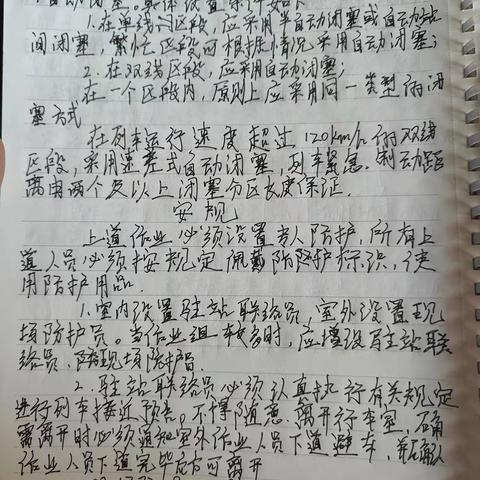 自动闭塞。具体设置条件如下:
1.在单线区段,应采用半自动闭塞或自动站
间闭塞,繁忙区段可根据情况采用自动闭塞;
2.在双线区段,应采用自动闭塞;
在一个区段内,原则上应采用同一类型的闭
塞方式
在列车运行速度超过120km/h的双线
区段,采用速差式自动闭塞,列车紧急制动距
离由两个及以上闭塞分区长度保证.
安规
上道作业必须设置专人防护,所有上
道人员必须按规定佩戴防护标识,使
用防护用品.
1.室内设置驻站联络员,室外设置现
场防护员。当作业组较多时,应增设驻站联
络员、现场防护员.
2.驻站联络员必须认真执行有关规定
进行列车接近预告。不得随意离开行车室,确
需离开时必须通知室外作业人员下道避车,并确认
作业人员下道完毕后方可离开